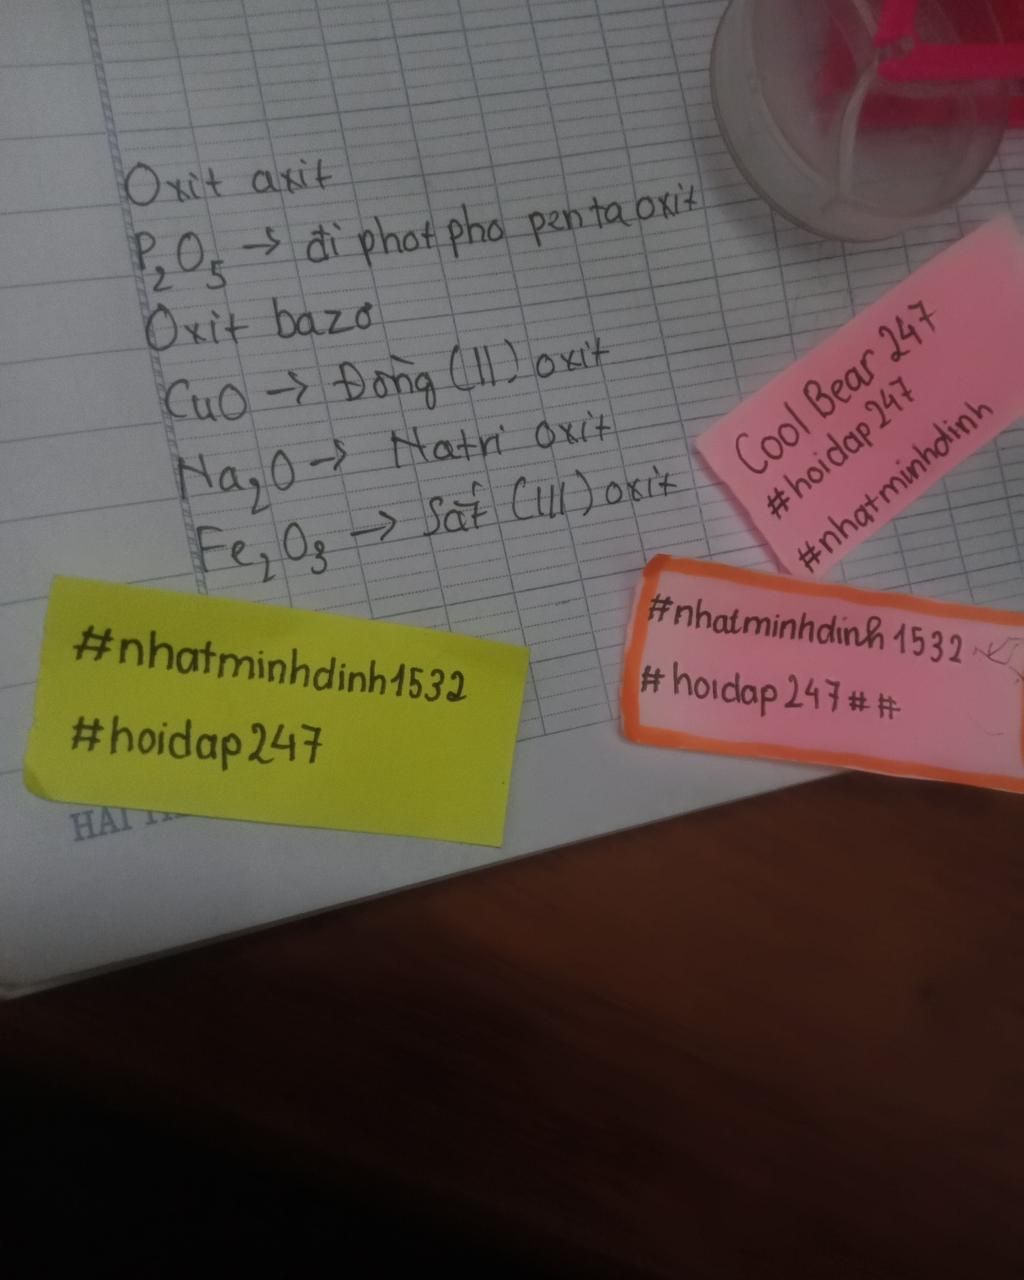 Oxit axit
P₂O₅ → đi phot pho penta oxit
Oxit bazơ
CuO → Đồng (II) oxit
Na₂O → Natri oxit
Fe₂O₃ → Sắt (III) oxit
Cool Bear 247
#hoidap247
#nhatminhdinh
#nhatminhdinh1532
#hoidap247##
#nhatminhdinh1532
#hoidap247
HAI